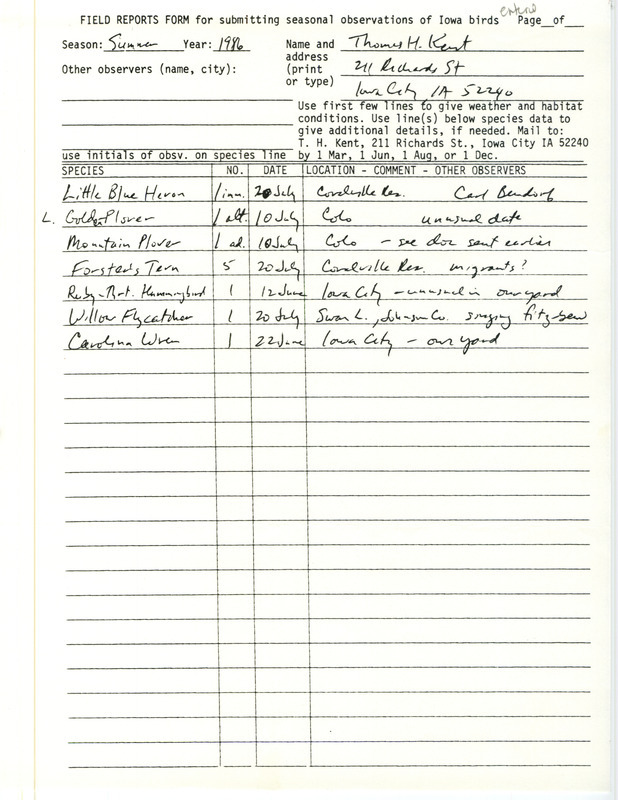 entered
FIELD REPORTS FORM for submitting seasonal observations of Iowa birds Page__of___
Season: Summer Year: 1986 Name and Thomas H. Kent
address
Other observers (name, city): (print 211 Richards St
or type)
Iowa City IA 52240
Use first few lines to give weather and habitat
conditions. Use line(s) below species data to
give additional details, if needed. Mail to:
T. H. Kent, 211 Richards St., Iowa City IA 52240
use initials of obsv. on species line by 1 Mar, 1 Jun, 1 Aug, or 1 Dec.
SPECIES NO. DATE LOCATION - COMMENT - OTHER OBSERVERS
Little Blue Heron 1 imm. 20 July Coralville Res. Carl Bendorf
L. Golden Plover 1 alt. 10 July Colo unusual date
Mountain Plover 1 ad. 10 July Colo - see doc sent earlier
Forster's Tern 5 20 July Coralville Res. migrants?
Ruby-Thrt. Hummingbird 1 12 June Iowa City - unusual in our yard
Willow Flycatcher 1 20 July Swan L., Johnson Co. singing fitz-bew
Carolina Wren 1 22 June Iowa City - our yard